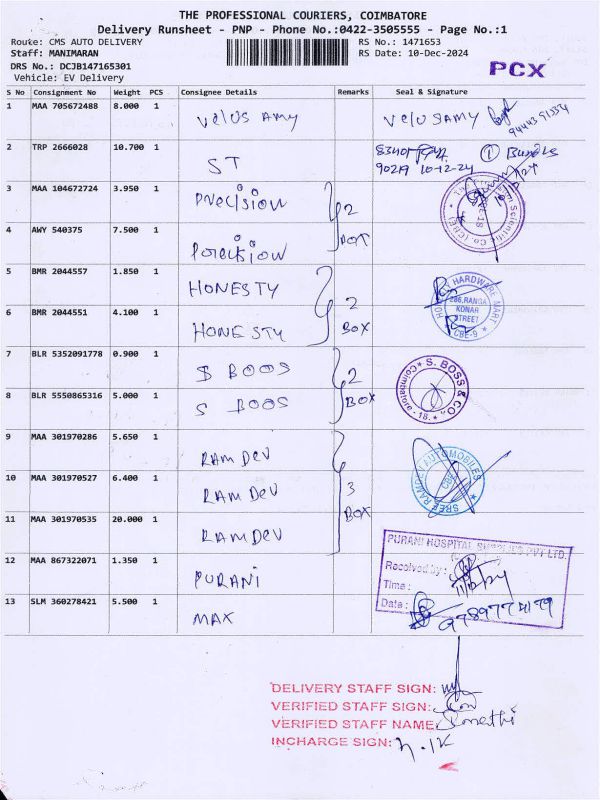 THE PROFESSIONAL COURIERS, COIMBATORE
Delivery Runsheet - PNP - Phone No.:0422-3505555 - Page No.:1
Route: CMS AUTO DELIVERY
RS No.: 1471653
Staff: MANIMARAN
RS Date: 10-Dec-2024
DRS No.: DCJB147165301
PCX
Vehicle: EV Delivery
S No Consignment No Weight PCS Consignee Details Remarks Seal & Signature
1 MAA 705672488 8.000 1 VelUS AMY VelUSAMY
2 TRP 2666028 10.700 1 ST 10-12-24 1 Bundle
3 MAA 104672724 3.950 1 Precision 2
4 AWY 540375 7.500 1 Precision BOX
5 BMR 2044557 1.850 1 HONESTY 2
HARDWARE MART
286,RANGA
KONAR
STREET
CBE-9
6 BMR 2044551 4.100 1 HONESTY BOX
7 BLR 5352091778 0.900 1 S BOOS 2
S. BOSS & CO.
Coimbatore - 18.
8 BLR 5550865316 5.000 1 S BOOS BOX
9 MAA 301970286 5.650 1 RAMDEV
SREE RAMDEV AUTOMOBILES
10 MAA 301970527 6.400 1 RAMDEV 3
11 MAA 301970535 20.000 1 RAMDEV BOX
PURANI HOSPITAL SUPPLIES PVT LTD.
12 MAA 867322071 1.350 1 PURANI
Received by:
Time :
Date :
13 SLM 360278421 5.500 1 MAX
DELIVERY STAFF SIGN:
VERIFIED STAFF SIGN:
VERIFIED STAFF NAME:
INCHARGE SIGN: